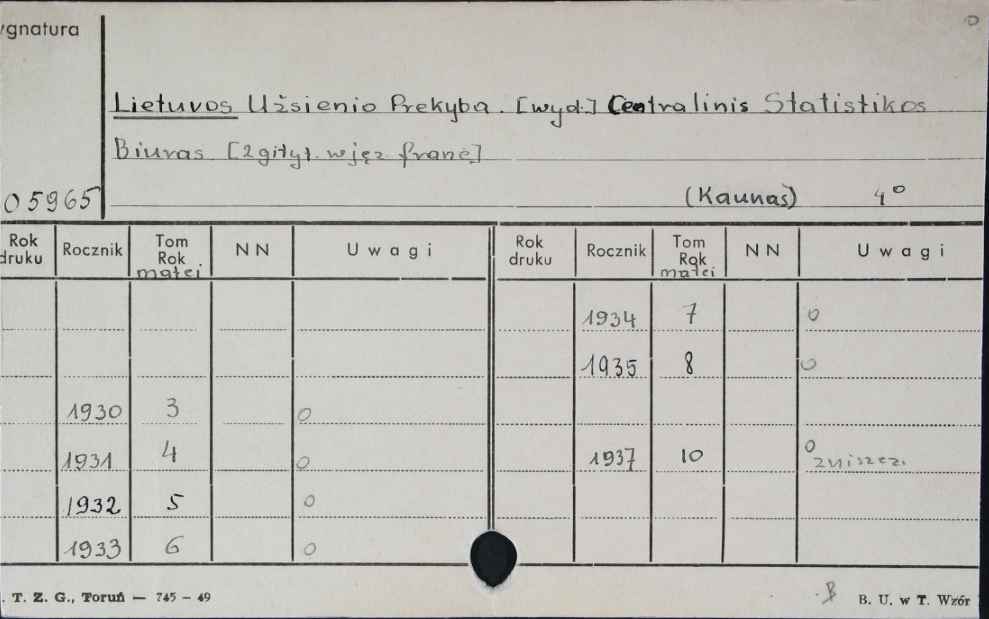 ygnatura
Lietuvos Užsienio Prekyba. [wyd.] Centralinis Statistikos
Biuras [2 g tyt. w jęz franc]
05965 (Kaunas) 4°
Rok druku Rocznik Tom Rok matei N N U w a g i Rok druku Rocznik Tom Rok matei N N U w a g i
1934 7 0
1935 8 0
1930 3 0
1931 4 0 1937 10 0 zniszcz.
1932 5 0
1933 6 0
. T. Z. G., Toruń — 745 – 49 B. U. w T. Wzór